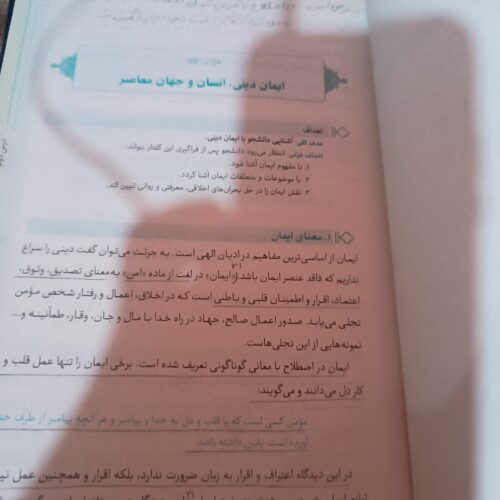 ایمان دینی، انسان و جهان معاصر
اهداف
هدف کلی. آشنایی دانشجو با ایمان دینی.
اهداف جزئی. انتظار می‌رود دانشجو پس از فراگیری این گفتار بتواند:
۱. با مفهوم ایمان آشنا شود.
۲. با موضوعات و متعلقات ایمان آشنا گردد.
۳. نقش ایمان را در حل بحران‌های اخلاقی، معرفتی و روانی تبیین کند.
۱. معنای ایمان
ایمان از اساسی‌ترین مفاهیم در ادیان الهی است. به جرئت می‌توان گفت دینی را سراغ
نداریم که فاقد عنصر ایمان باشد. «ایمان» در لغت از ماده «امن» به معنای تصدیق، وثوق،
اعتماد، اقرار و اطمینان قلبی و باطنی است که در اخلاق، اعمال و رفتار شخص مؤمن
تجلی می‌یابد. صدور اعمال صالح، جهاد در راه خدا با مال و جان، وقار، طمأنینه و...
نمونه‌هایی از این تجلی‌هاست.
ایمان در اصطلاح با معانی گوناگونی تعریف شده است. برخی ایمان را تنها عمل قلب و
کار دل می‌دانند و می‌گویند:
مؤمن کسی است که با قلب و دل به خدا و پیامبر و هر آنچه پیامبر از طرف خدا
آورده است، یقین داشته باشد.
در این دیدگاه اعتراف و اقرار به زبان ضرورت ندارد، بلکه اقرار و همچنین عمل نیز